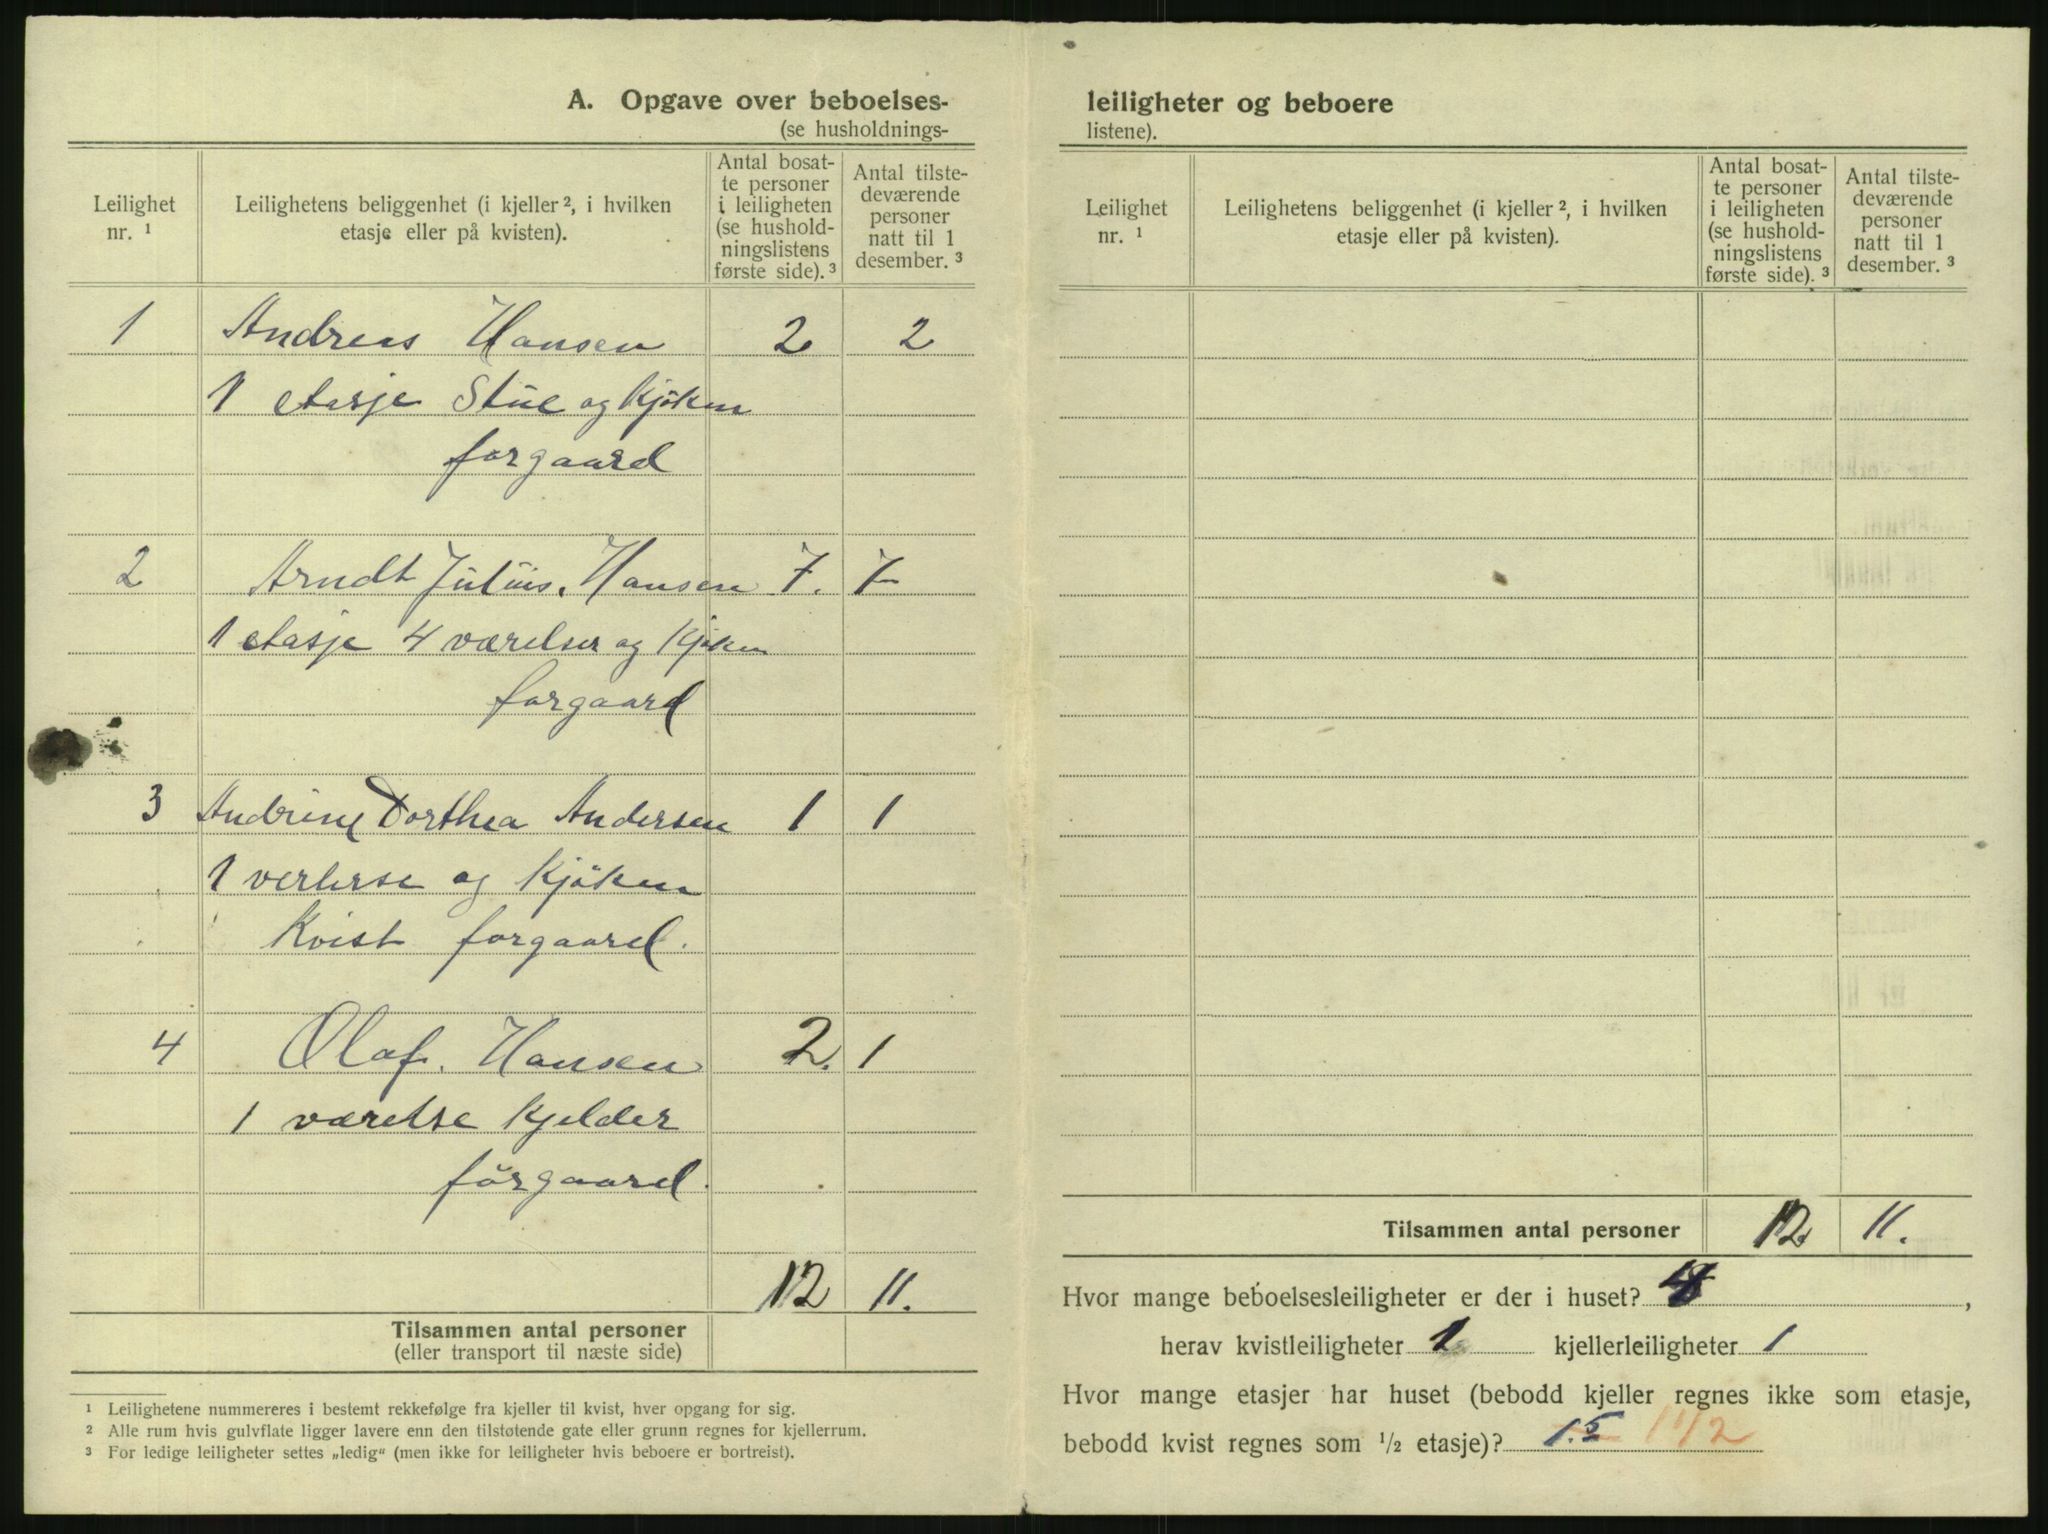 A. Opgave over beboelses-
(se husholdnings-
Leilighet nr. 1
Leilighetens beliggenhet (i kjeller 2, i hvilken etasje eller på kvisten).
Antal bosatte personer i leiligheten (se husholdningslistens første side). 3
Antal tilstedeværende personer natt til 1 desember. 3
1 Andreas Hansen 2 2
1 etasje Stue og Kjöken
forgaard
2 Arndt Julius. Hansen 7. 7
1 etasje 4 værelser og Kjöken
forgaard
3 Andrine Dorthea Andersen 1 1
1 og Kjöken
Kvist forgaard.
4 Olaf. Hansen 2. 1
1 værelse Kjelder
forgaard.
12 11.
Tilsammen antal personer
(eller transport til næste side)
1 Leilighetene nummereres i bestemt rekkefølge fra kjeller til kvist, hver opgang for sig.
2 Alle rum hvis gulvflate ligger lavere enn den tilstøtende gate eller grunn regnes for kjellerrum.
3 For ledige leiligheter settes „ledig“ (men ikke for leiligheter hvis beboere er bortreist).
leiligheter og beboere
listene).
Leilighet nr. 1
Leilighetens beliggenhet (i kjeller 2, i hvilken etasje eller på kvisten).
Antal bosatte personer i leiligheten (se husholdningslistens første side). 3
Antal tilstedeværende personer natt til 1 desember. 3
Tilsammen antal personer 12 11.
Hvor mange beboelsesleiligheter er der i huset? 4,
herav kvistleiligheter 1 kjellerleiligheter 1
Hvor mange etasjer har huset (bebodd kjeller regnes ikke som etasje,
bebodd kvist regnes som 1/2 etasje)? 1.5 1 1/2